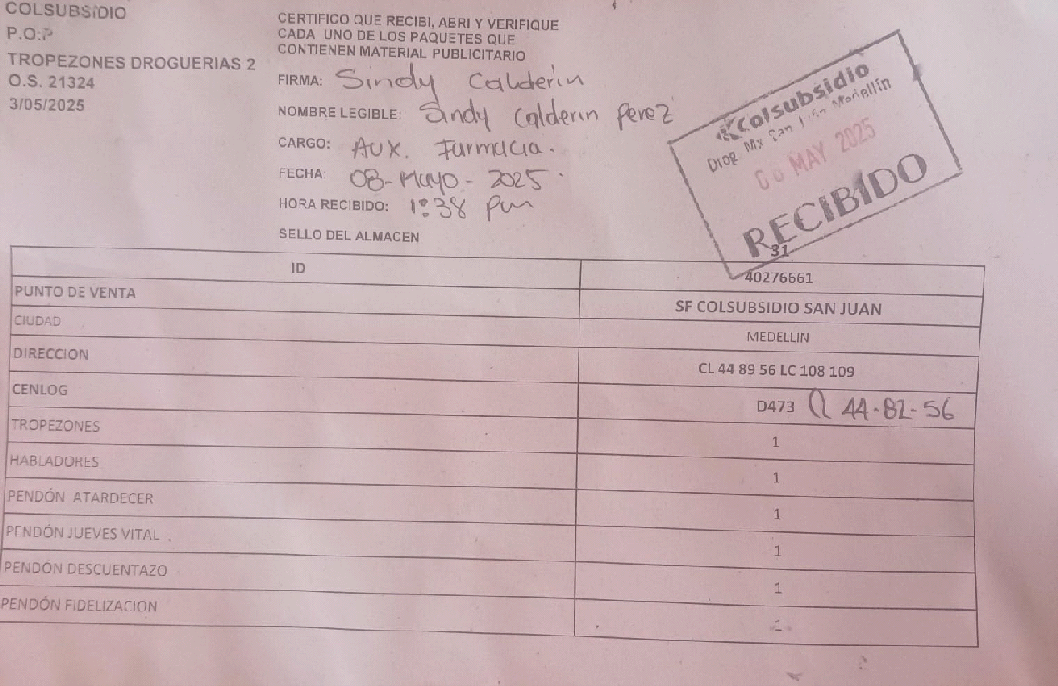 COLSUBSIDIO
P.O.P
TROPEZONES DROGUERIAS 2
O.S. 21324
3/05/2025
CERTIFICO QUE RECIBI, ABRI Y VERIFIQUE
CADA UNO DE LOS PAQUETES QUE
CONTIENEN MATERIAL PUBLICITARIO
FIRMA: Sindy Calderin
NOMBRE LEGIBLE: Sindy Calderin Perez
CARGO: Aux. Farmacia.
FECHA 08-Mayo-2025.
HORA RECIBIDO: 1:38 pm
SELLO DEL ALMACEN
Colsubsidio
Drog Mx San Juan Medellin
MAY 2025
RECIBIDO
31
ID 40276661
PUNTO DE VENTA SF COLSUBSIDIO SAN JUAN
CIUDAD MEDELLIN
DIRECCION CL 44 89 56 LC 108 109
CENLOG D473 CL 44-82-56
TROPEZONES 1
HABLADORES 1
PENDÓN ATARDECER 1
PENDÓN JUEVES VITAL 1
PENDÓN DESCUENTAZO 1
PENDÓN FIDELIZACION